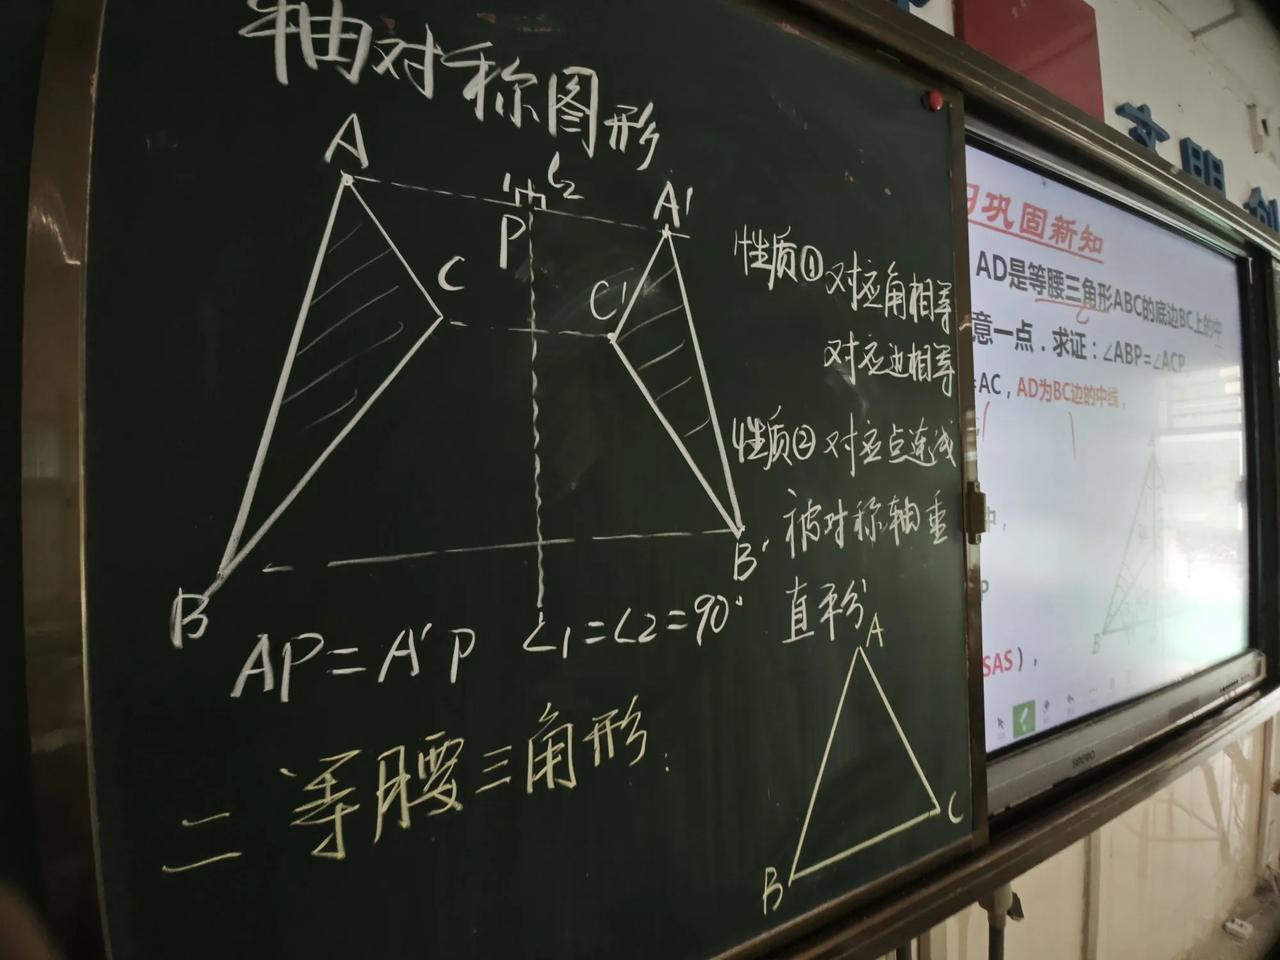 轴对称图形
A
1
2
P
A'
C
C'
B
B'
AP=A'P ∠1=∠2=90°
二 等腰三角形
性质① 对应角相等
对应边相等
性质② 对应点连线
被对称轴垂
直平分
A
B
C
文明
习巩固新知
AD是等腰三角形ABC的底边BC上的中
意一点．求证：∠ABP=∠ACP
=AC，AD为BC边的中线，
SAS），